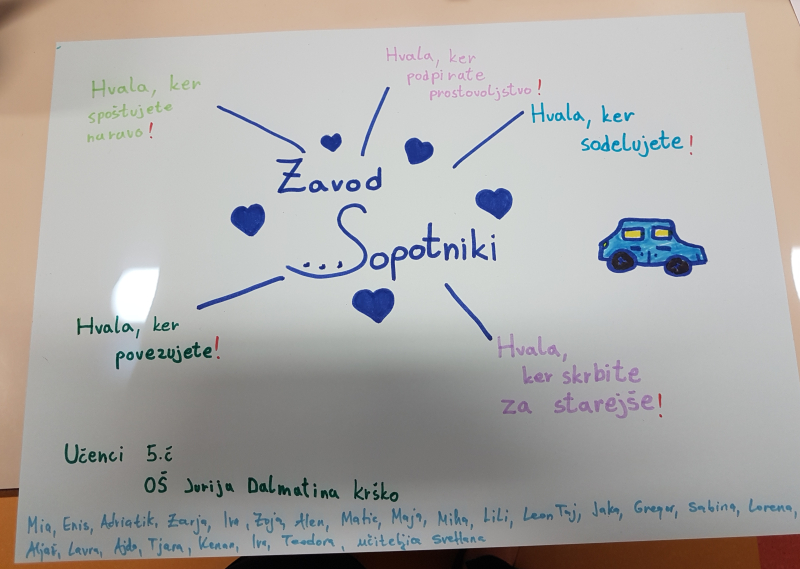 Hvala, ker
spoštujete
naravo!
Hvala, ker
podpirate
prostovoljstvo!
Hvala, ker
sodelujete!
Zavod
...Sopotniki
Hvala, ker
povezujete!
Hvala,
ker skrbite
za starejše!
Učenci 5.č
OŠ Jurija Dalmatina krško
Mia, Enis, Adriatik, Zarja, Iva, Zoja, Alen, Matic, Maja, Miha, Lili, Leon Taj, Jaka, Gregor, Sabina, Lorena,
Aljaš, Lavra, Ajda, Tjara, Kenan, Iva, Teodora, učiteljica Svetlana